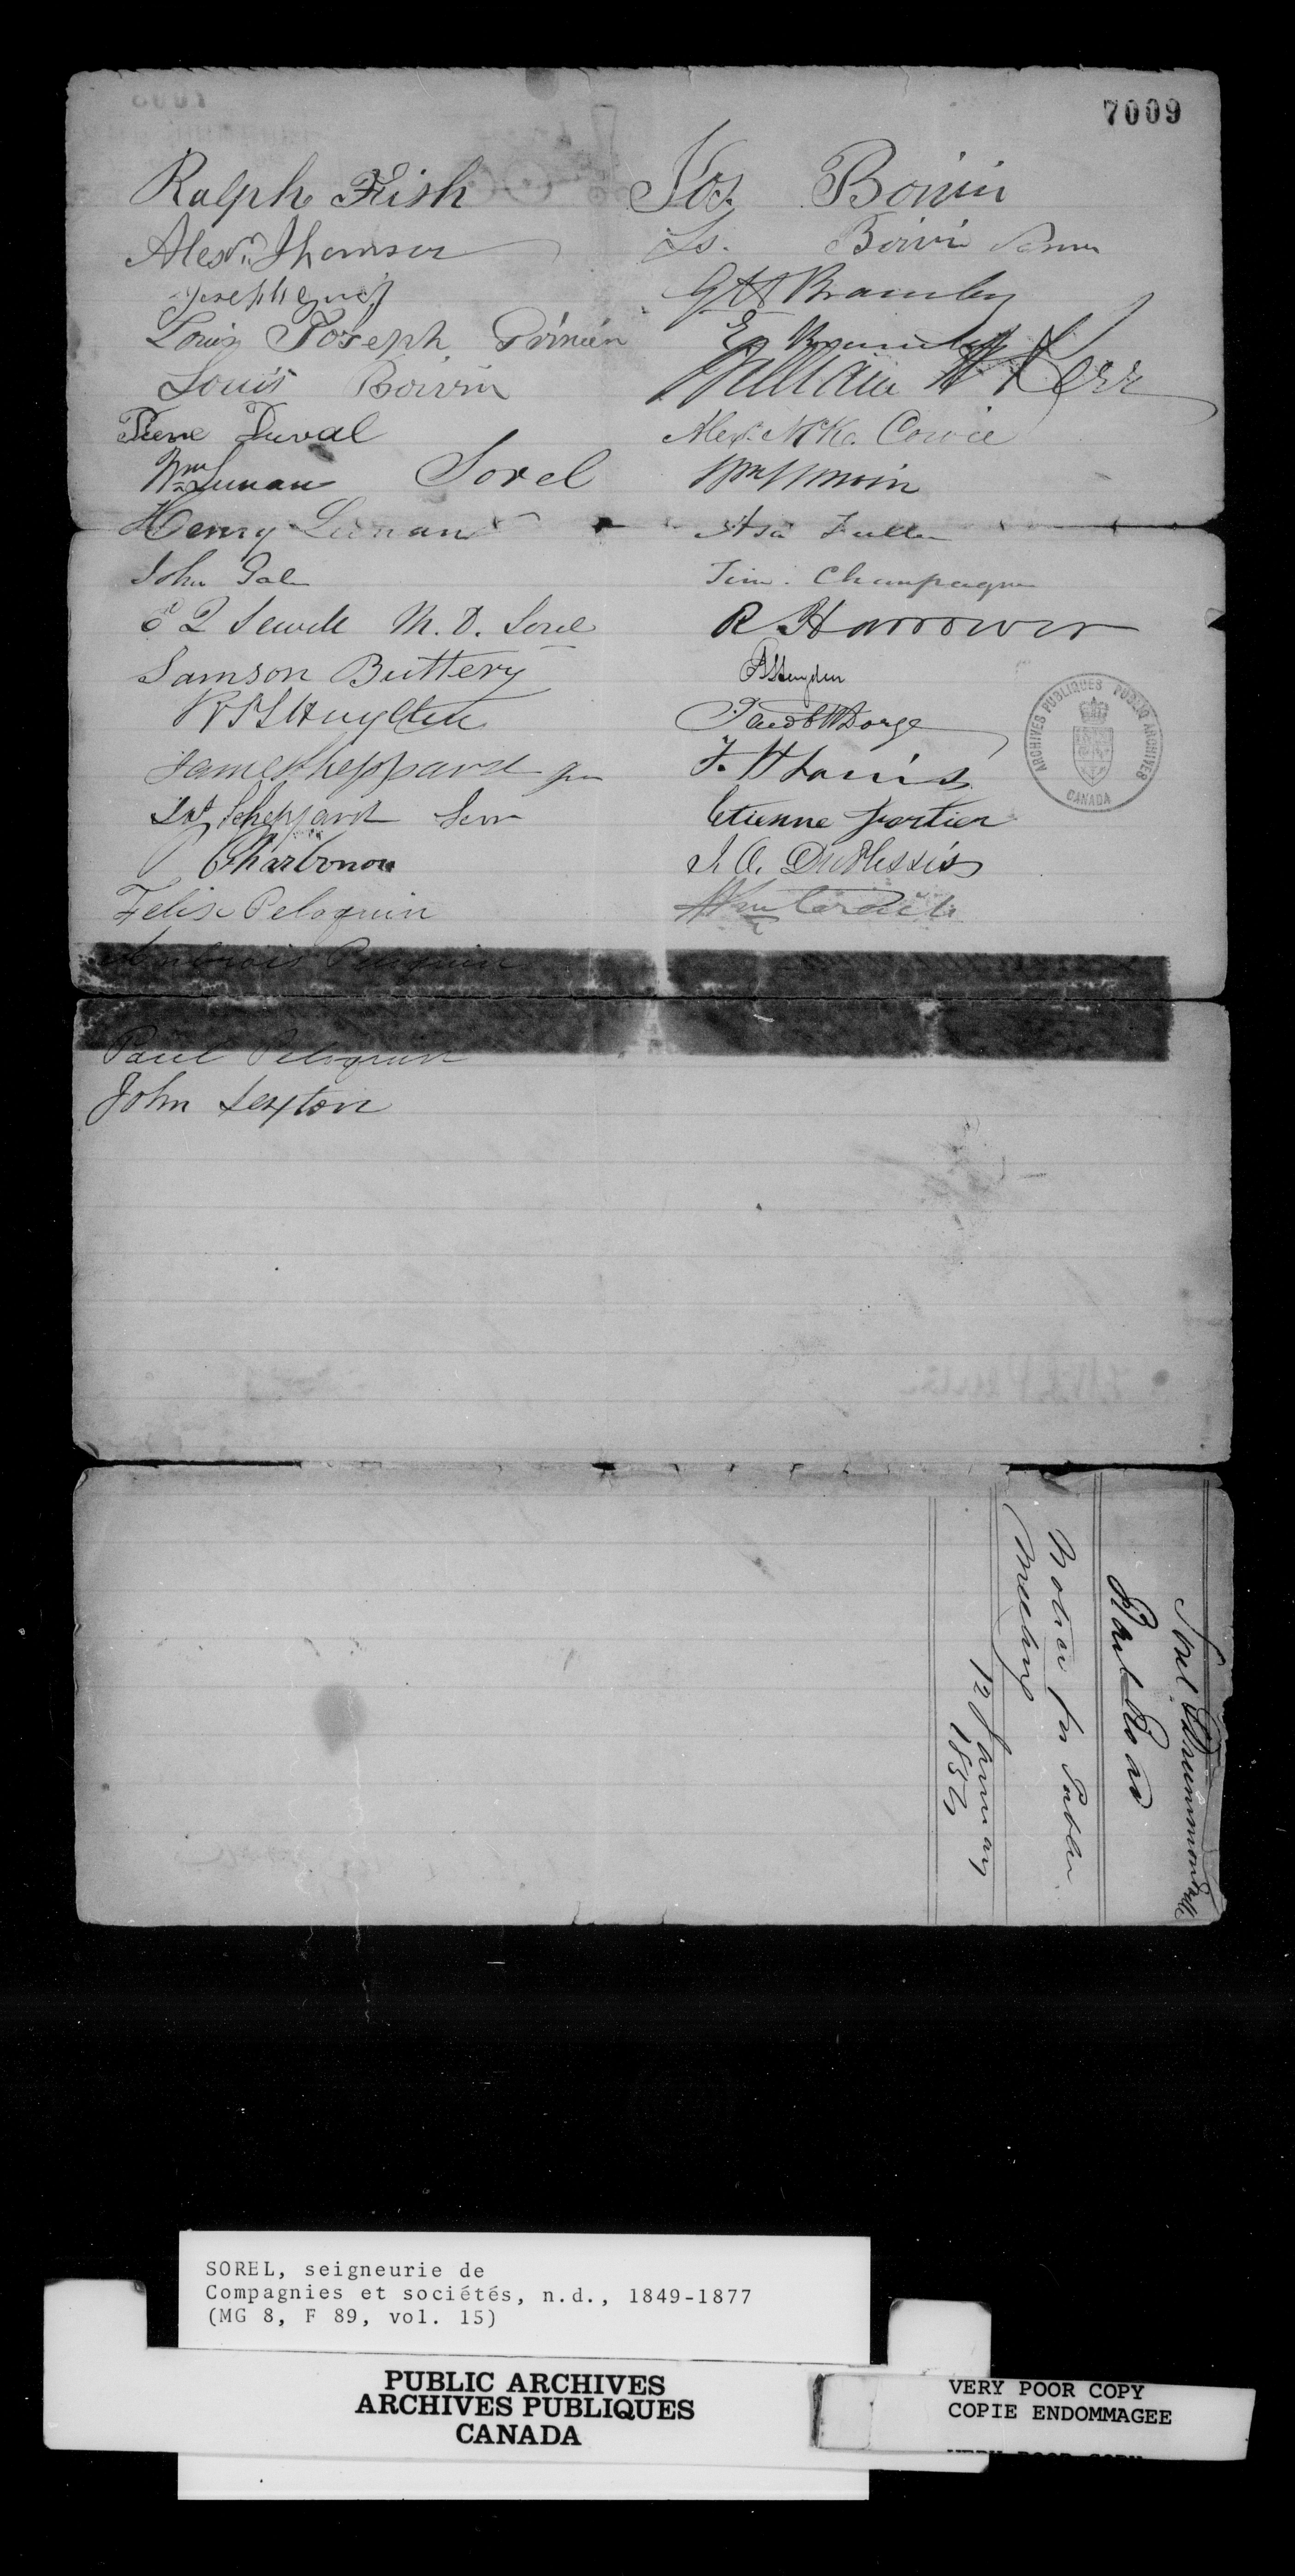 7009
Ralph Fish
Alexr. Thomson
Joseph
Louis Joseph
Louis Boivin
Pierre Duval
Wm Lunan Sorel
Henry Lunan
John
Sewell M.D. Sorel
Samson Buttery
James Sheppard Jun
Sheppard Senr
P Charbonou
Felix Peloquin
Ambrois Peloquin
Paul Peloquin
John Sexton
Jos. Boivin
Ls. Boivin
G H Bramley
E Bramley
William H Kerr
Alex. McKc. Cowie
Wm
Asa Fuller
Tim. Champagne
R. Harrower
Dorge
Etienne Fortier
DuPlessis
ARCHIVES PUBLIQUES PUBLIC ARCHIVES
CANADA
Sorel Drummondville
Rail Road
Notice for Public
Meeting
12 January
1856
SOREL, seigneurie de
Compagnies et sociétés, n.d., 1849-1877
(MG 8, F 89, vol. 15)
PUBLIC ARCHIVES
ARCHIVES PUBLIQUES
CANADA
VERY POOR COPY
COPIE ENDOMMAGEE
VERY POOR COPY